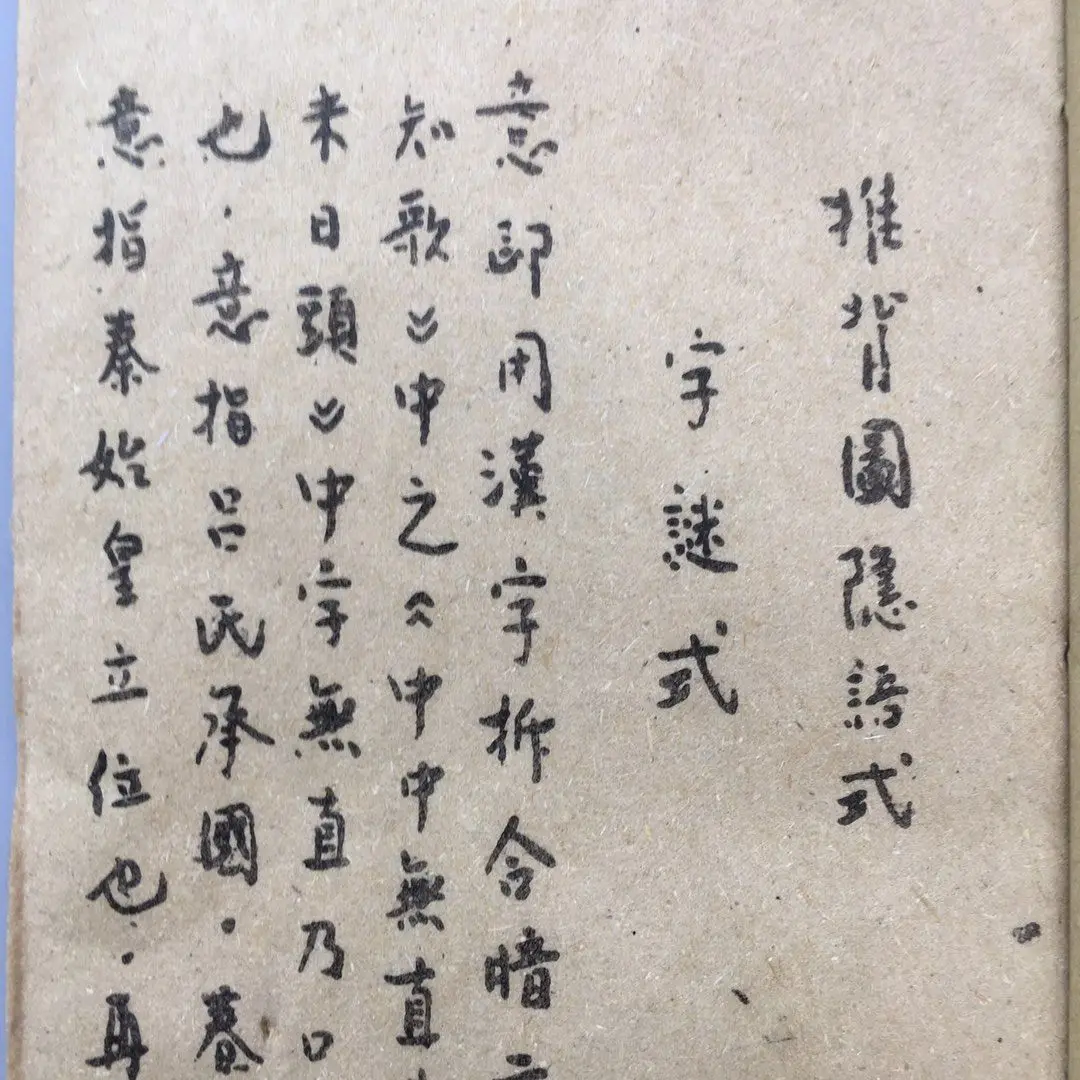 推背圖隱語式
字謎式
意即用漢字拆合暗
知歌》中之《中中無直
未日頭》中字無直乃口
也.意指呂氏承國.春
意指秦始皇立位也.再